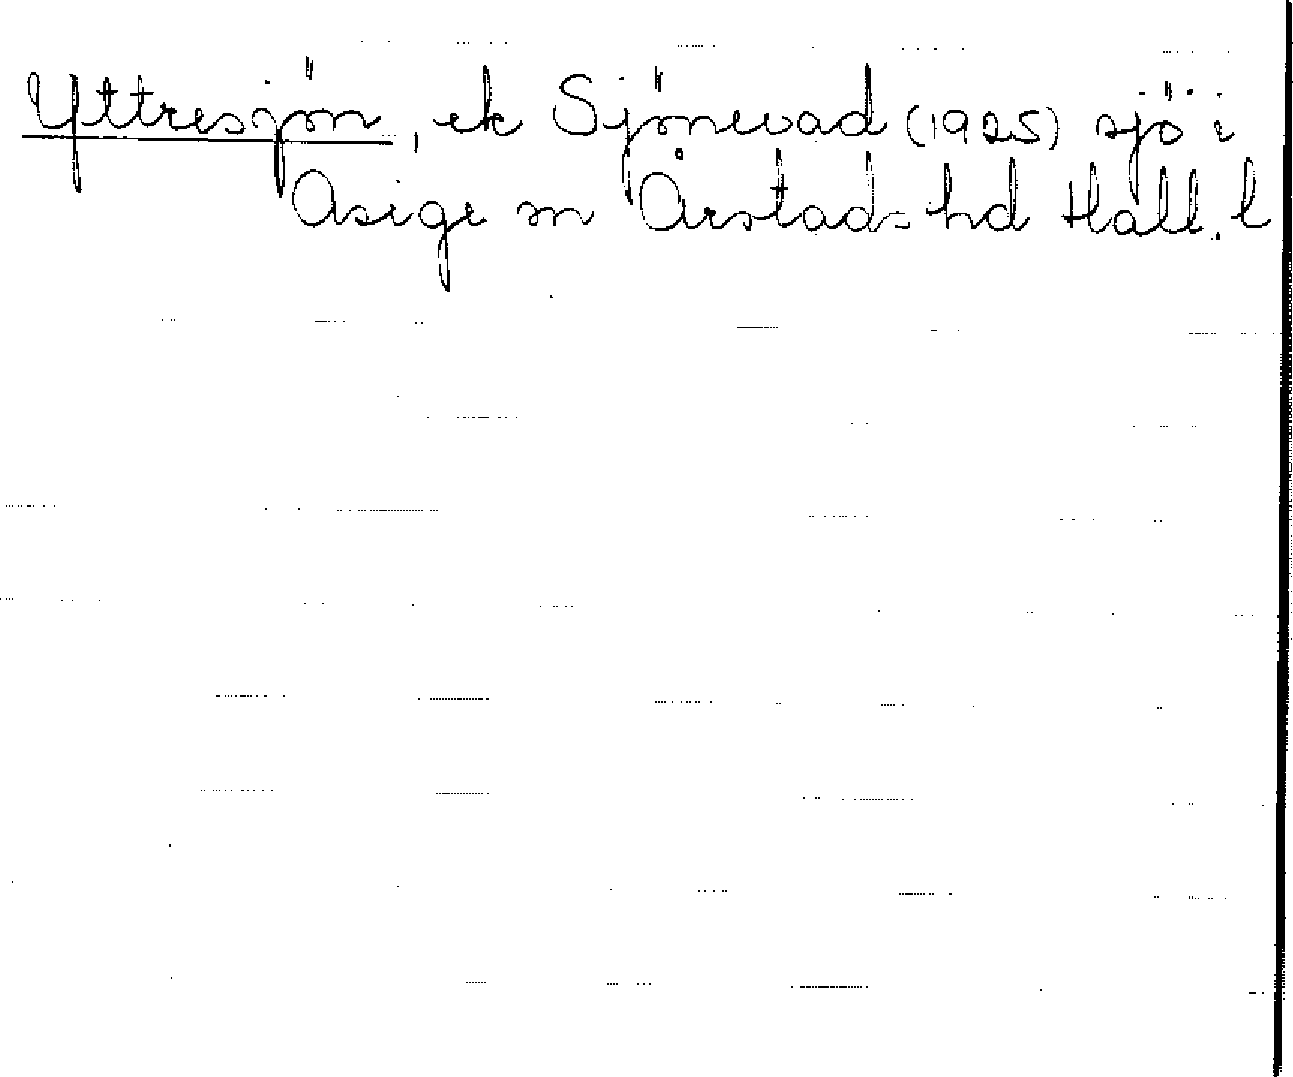 Yttresjön, ek Sjönevad (1925) sjö i
Asige sn Årstads hd Hall. l